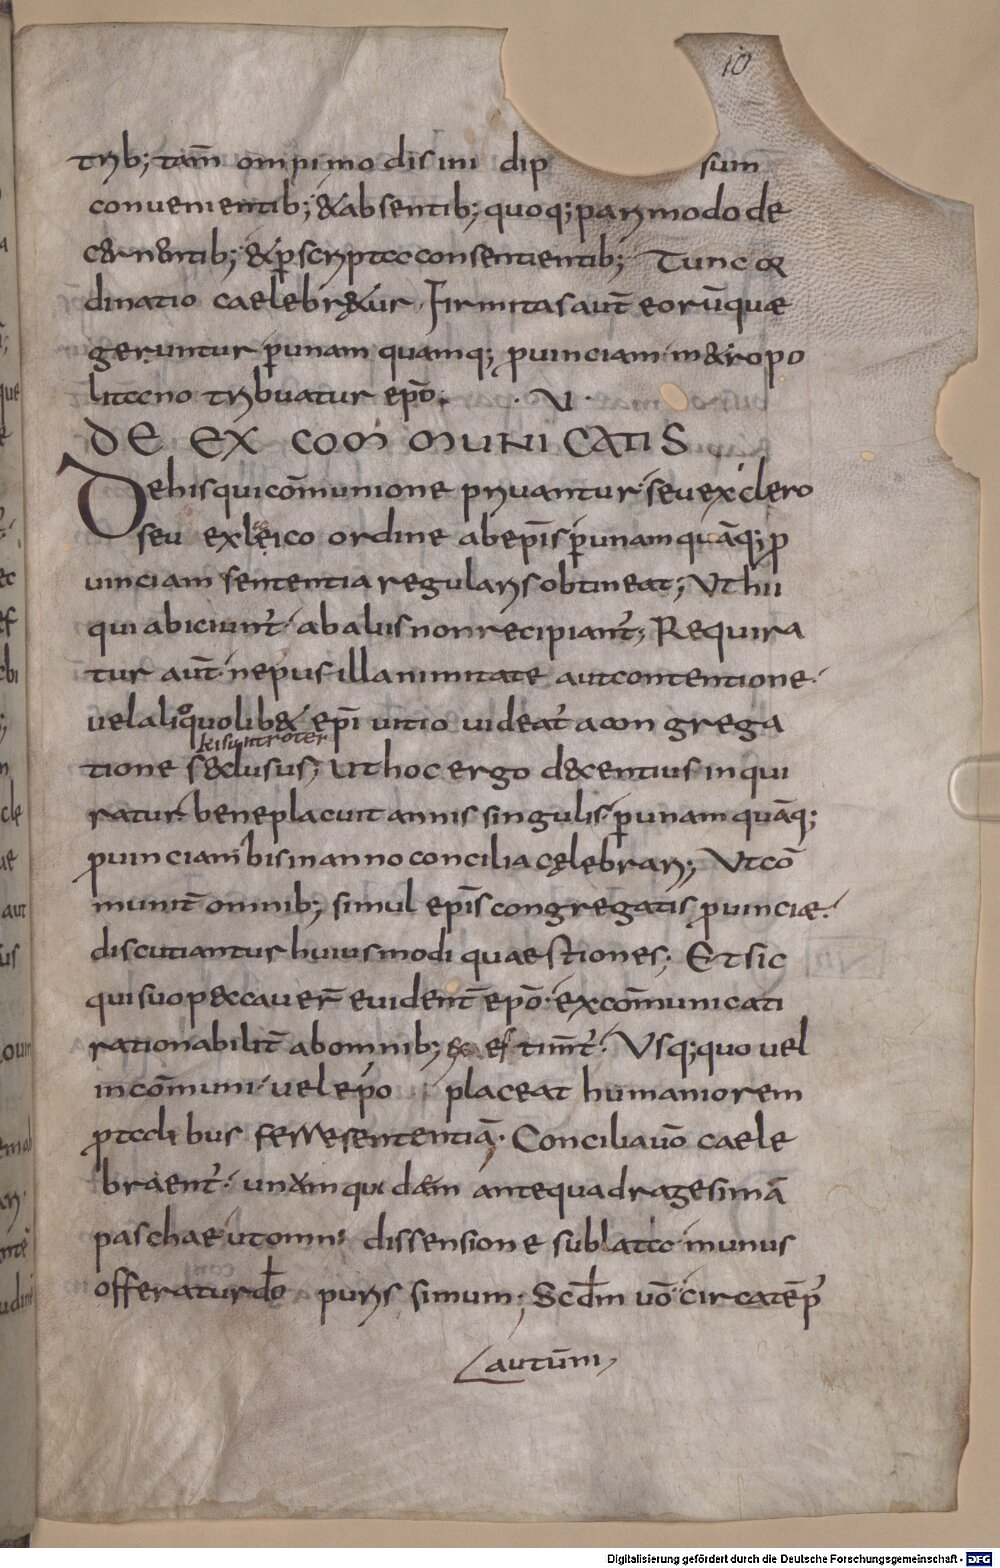 10
trib; tam̄ omnimodis in idip sum
conuenientib; & absentib; quoq; pari modo de
c&rn&ntib; & p̲ scripta consentientib; Tunc or
dinatio caelebr&ur. Firmitas aut̄ eorū quae
geruntur p̲ unam quamq; prouinciam m&ropo
litano tribuatur ep̄o. ·VI·
DE EXCOMMUNICATIS
De his qui com̄unione priuantur seu ex clero
seu ex laico ordine ab ep̄is p̲ unam quāq; pro
uinciam sententia regularis obtineat; Ut hii
qui abiciunt̄ ab aliis non recipiant̄; Requira
tur aut̄ ne pusillanimitate aut contentione.
uel aliquolib& ep̄i uitio uideat̄ a congrega
tione seclusus; Ut hoc ergo decentius inqui
ratur bene placuit annis singulis p̲ unam quāq;
prouinciam bis in anno concilia cęlebrari; Ut cō
munit̄ omnib; simul ep̄is congregatis prouinciae.
discutiantur huiusmodi quaestiones; Et sic
qui suo peccauer̄ euident̄ ep̄o. excom̄unicati
rationabilit̄ ab omnib; estiment̄. Usq; quo uel
in com̄uni uel ep̄o placeat humaniorem
pro talibus ferre sententiā. Concilia uō caele
braent̄. unam quidam ante quadragesimā
paschae ut omni dissensione sublata munus
offeratur dō purissimum; Scdm̄ uō circa temp̲
autūmni